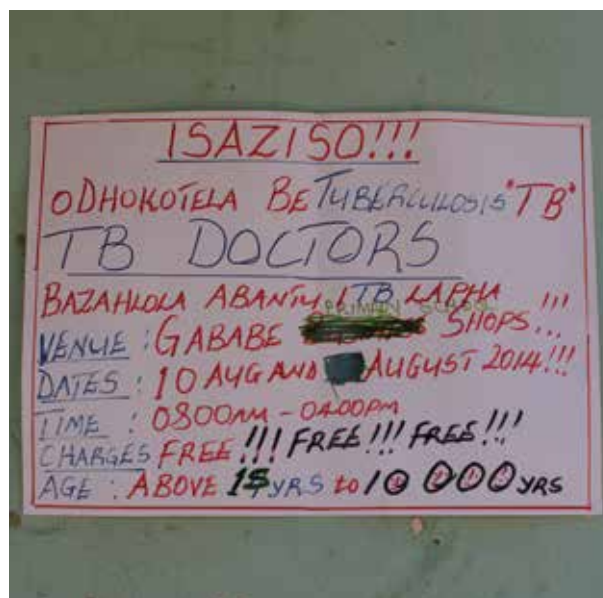 ISAZISO!!!
ODHOKOTELA BETUBERCULOSIS "TB"
TB DOCTORS
BAZAHLOLA ABANTU ITB LAPHA !!!
PRIMARY SCHOOL
VENUE : GABABE SHOPS...
DATES : 10 AUG AND AUGUST 2014!!!
TIME : 0800AM - 0400PM
CHARGES FREE!!! FREE!!! FREE!!!
AGE : ABOVE 15 YRS to 10 000 YRS